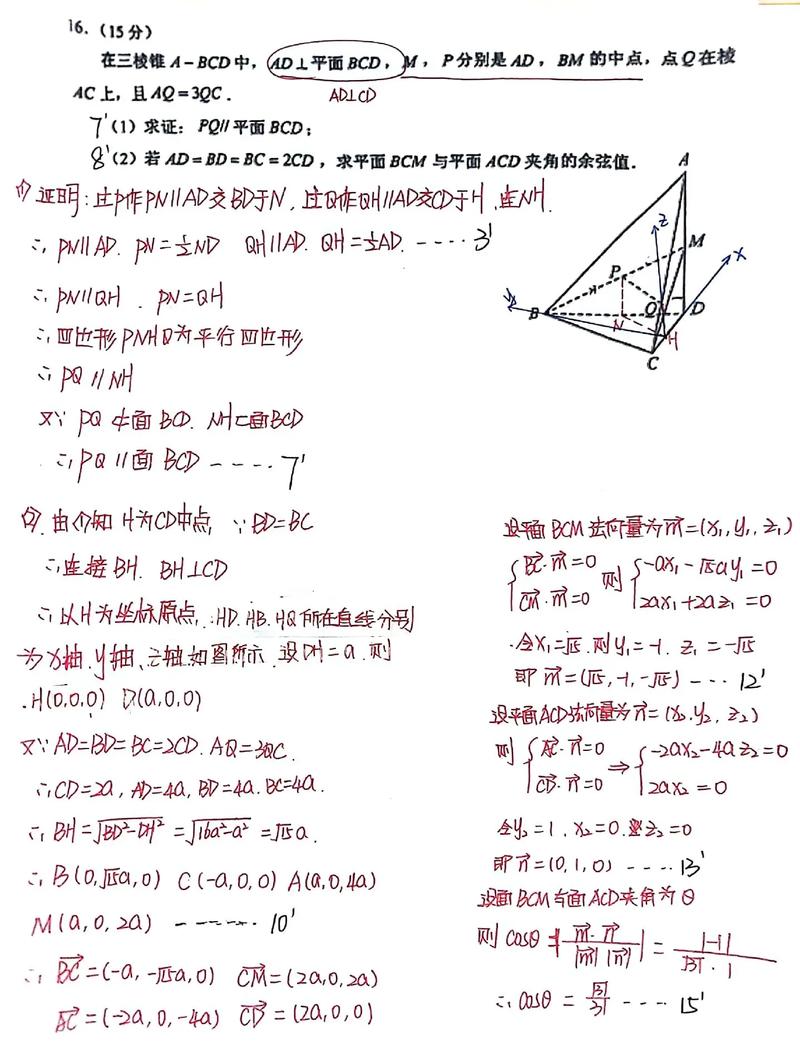 16.（15分）
在三棱锥 A－BCD 中，AD⊥平面 BCD，M，P 分别是 AD，BM 的中点，点 Q 在棱
AC 上，且 AQ=3QC．
AD⊥CD
7'（1）求证：PQ∥平面 BCD；
8'（2）若 AD=BD=BC=2CD，求平面 BCM 与平面 ACD 夹角的余弦值．
(1) 证明:过P作PN∥AD交BD于N,过Q作QH∥AD交CD于H,连NH.
∴ PN∥AD. PN=½ND QH∥AD. QH=¼AD. ---- 3'
∴ PN∥QH . PN=QH
∴四边形PNHQ为平行四边形
∴ PQ∥NH
又∵ PQ⊄面BCD. NH⊂面BCD
∴PQ∥面BCD ---- 7'
A
M
Z
X
P
y
B
Q
D
N
H
C
(2).由(1)知 H为CD中点 ∵BD=BC
∴连接BH. BH⊥CD
∴以H为坐标原点,HD.HB.HQ所在直线分别
为x轴.y轴.z轴如图所示.设DH=a.则
.H(0,0,0) D(a,0,0)
又∵AD=BD=BC=2CD. AQ=3QC.
∴CD=2a, AD=4a, BD=4a. BC=4a.
∴BH=√(BD²-DH²) = √(16a²-a²) = √15a.
∴B(0,√15a,0) C(-a,0,0) A(a,0,4a)
M(a,0,2a) ------ 10'
∴ BC→=(-a,-√15a,0) CM→=(2a,0,2a)
AC→=(-2a,0,-4a) CD→=(2a,0,0)
设平面BCM法向量为m→=(x₁,y₁,z₁)
{BC→·m→=0 则 {-ax₁-√15ay₁=0
{CM→·m→=0 {2ax₁+2az₁=0
令x₁=√15.则y₁=-1. z₁=-√15
即m→=(√15,-1,-√15) --- 12'
设平面ACD法向量为n→=(x₂,y₂,z₂)
则 {AC→·n→=0 ⇒ {-2ax₂-4az₂=0
{CD→·n→=0 {2ax₂=0
令y₂=1. x₂=0. z₂=0
即n→=(0,1,0) ---- 13'
设面BCM与面ACD夹角为θ
则cosθ=|m→·n→/|m→||n→|| = |-1|/√31·1
∴cosθ = √31/31 ---- 15'